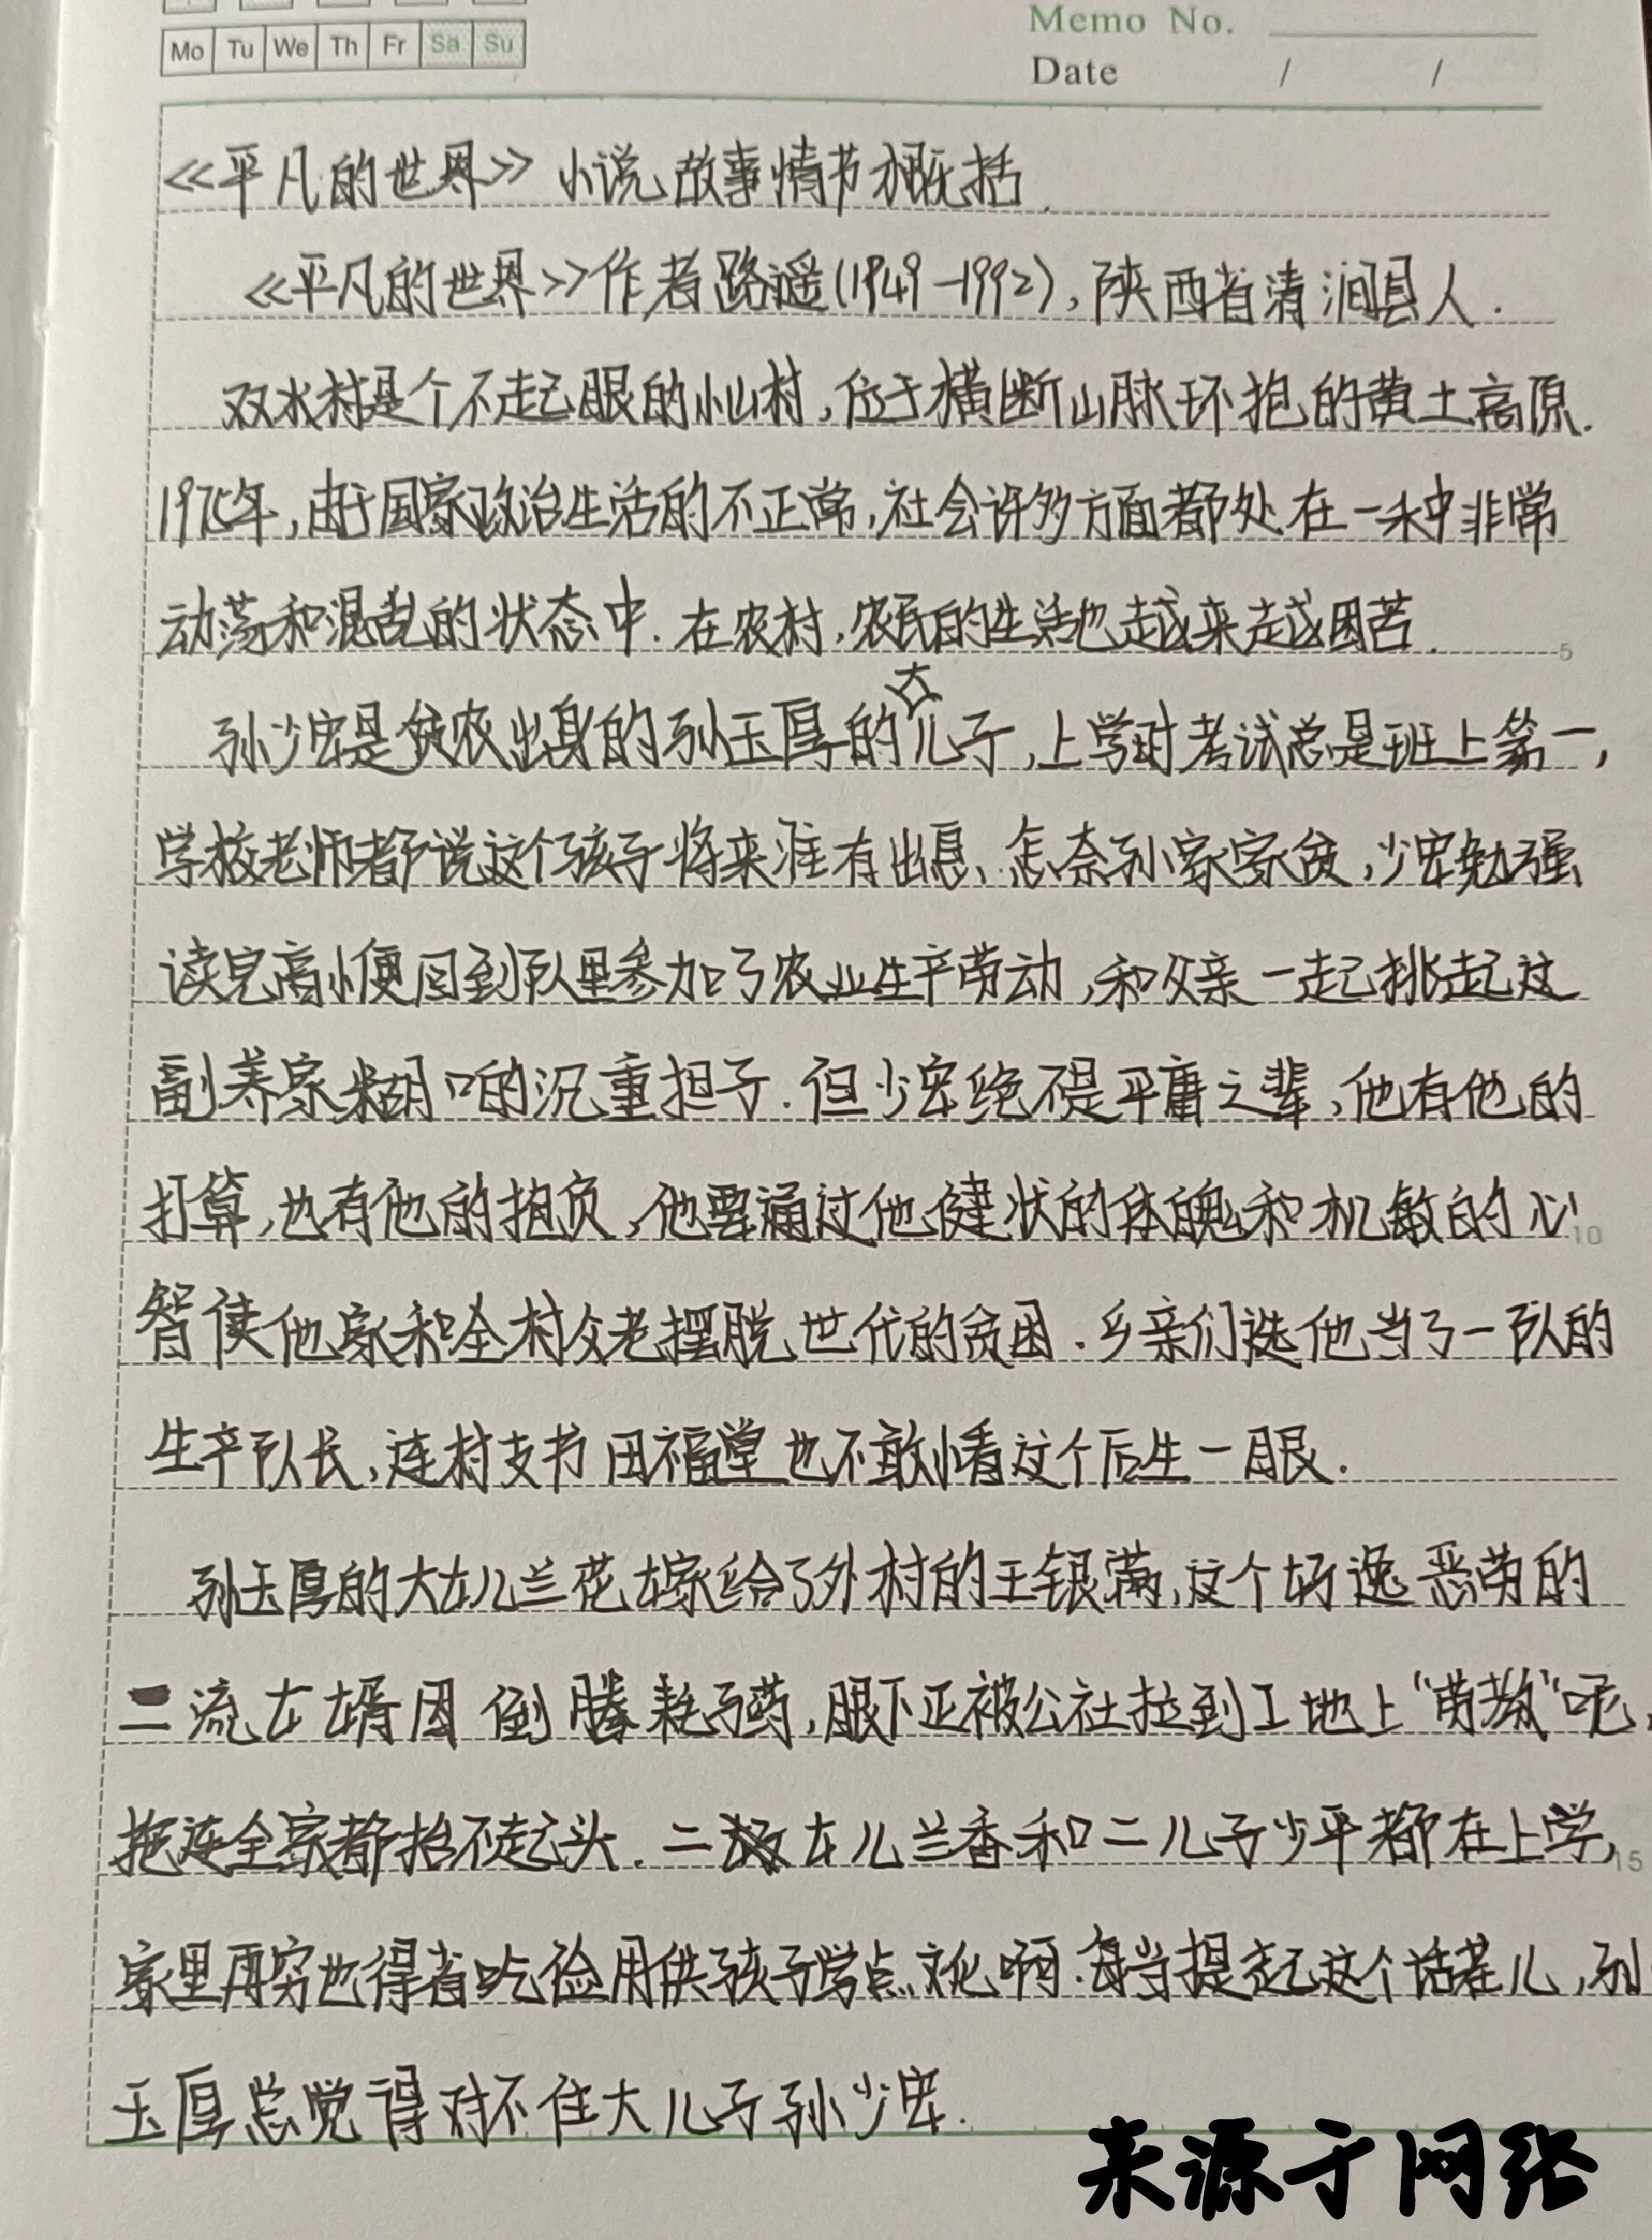 Mo Tu We Th Fr Sa Su
Memo No.
Date / /
《平凡的世界》小说故事情节概括.
《平凡的世界》作者路遥(1949-1992),陕西省清涧县人.
双水村是个不起眼的小山村,位于横断山脉环抱的黄土高原.
年,由于国家政治生活的不正常,社会许多方面都处在一种非常
动荡和混乱的状态中.在农村,农民的生活也越来越困苦.
孙少安是贫农出身的孙玉厚的大儿子,上学时考试总是班上第一,
学校老师都说这个孩子将来准有出息、怎奈孙家家贫,少安勉强
读完高小便回到队里参加了农业生产劳动,和父亲一起挑起这
副养家糊口的沉重担子.但少安绝不是平庸之辈,他有他的
打算,也有他的抱负,他要通过他健状的体魄和机敏的心
智使他家和全村父老摆脱世代的贫困.乡亲们选他当了一队的
生产队长,连村支书田福堂也不敢小看这个后生一眼.
孙玉厚的大女儿兰花嫁给了外村的王银满,这个好逸恶劳的
二流女婿因倒腾耗子药,眼下正被公社拉到工地上“劳教”呢,
拖连全家都抬不起头.二女儿兰香和二儿子少平都在上学,
家里再穷也得省吃俭用供孩子学点文化啊.每当提起这个话茬儿,孙
玉厚总觉得对不住大儿子孙少安.
5
10
15
来源于网络